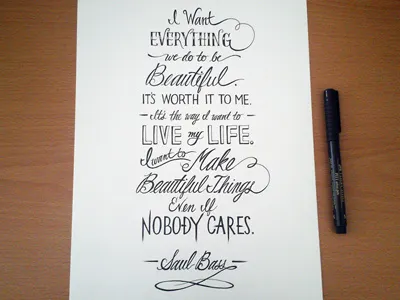 I Want
EVERYTHING
we do to be
Beautiful.
IT'S WORTH IT TO ME.
- It's the way I want to -
LIVE my LIFE.
I want to Make
Beautiful Things
Even If
NOBODY CARES.
- Saul Bass -